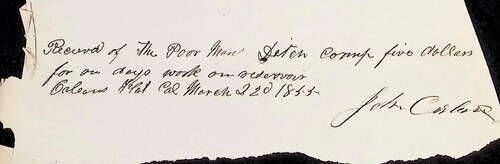 Recievd of The Poor Mans Ditch Comp five dollars
for on days work on reservoir
Orleans Flat Cal March 22d 1855
John